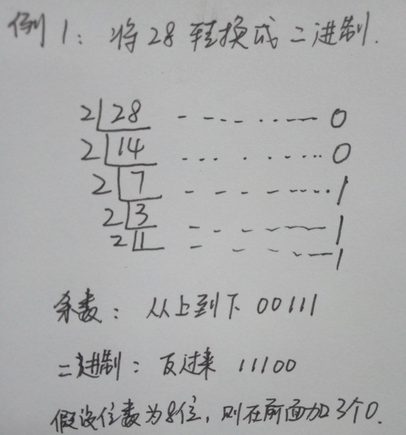 例1：将28转换成二进制.
2 28 ------ 0
2 14 ------ 0
2 7 ------ 1
2 3 ------ 1
2 1 ------ 1
余数：从上到下 00111
二进制：反过来 11100
假设位数为8位，则在前面加3个0.